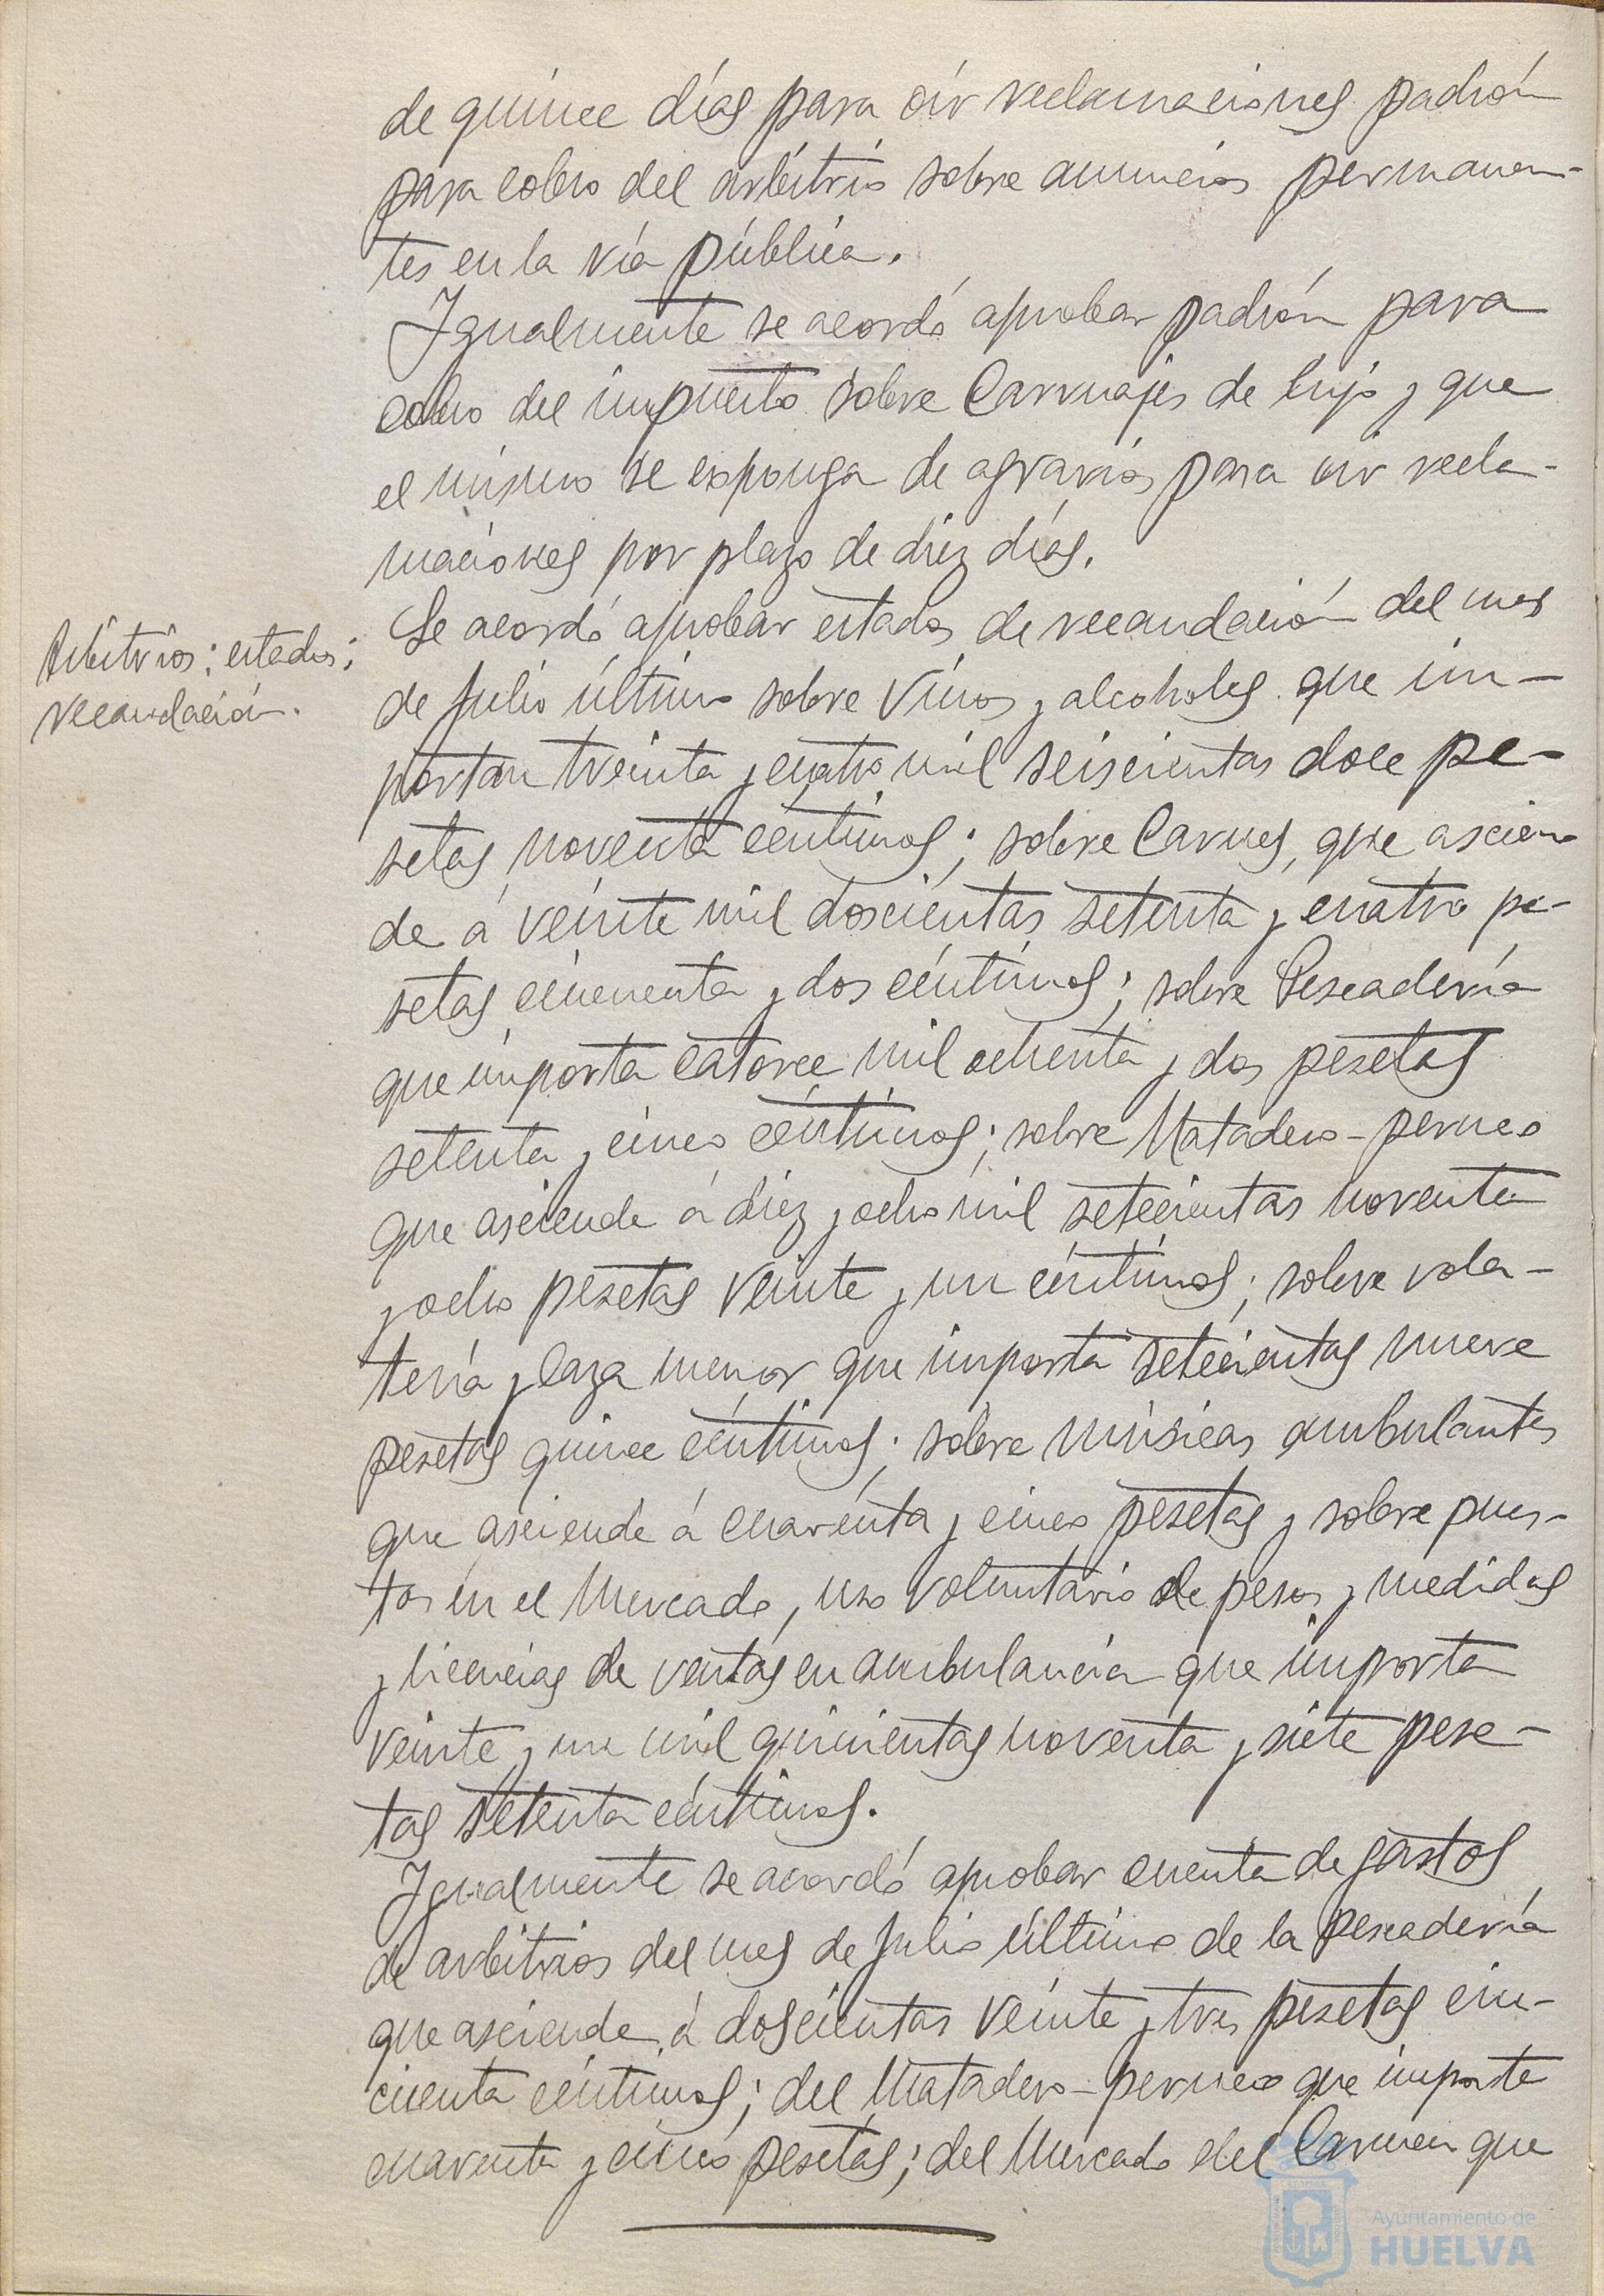 de quince días para oir reclamaciones padrón
para cobro del arbitrio sobre anuncios permanen-
tes en la vía pública.
Igualmente se acordó aprobar padrón para
cobro del impuesto sobre Carruajes de lujo y que
el mismo se esponga de agravios para oir recla-
maciones por plazo de diez días.
Arbitrios; estados;
recaudación.
Se acordó aprobar estados de recaudación del mes
de Julio último sobre Vinos y alcoholes que im-
portan treinta y cuatro mil seiscientas doce pe-
setas noventa céntimos; sobre Carnes, que ascien-
de á veinte mil doscientas setenta y cuatro pe-
setas cincuenta y dos céntimos; sobre Pescadería
que importa catorce mil ochenta y dos pesetas
setenta y cinco céntimos; sobre Matadero-perneo
que asciende á diez y ocho mil setecientas noventa
y ocho pesetas veinte y un céntimos; sobre vola-
tería y caza menor que importa setecientas nueve
pesetas quince céntimos; sobre músicas ambulantes
que asciende á cuarenta y cinco pesetas y sobre pues-
tos en el Mercado, uso voluntario de pesos y medidas
y licencias de ventas en ambulancia que importa
veinte y un mil quinientas noventa y siete pese-
tas setenta céntimos.
Igualmente se acordó aprobar cuenta de gastos
de arbitrios del mes de Julio último de la pescadería
que asciende á doscientas veinte y tres pesetas cin-
cuenta céntimos; del Matadero-perneo que importa
cuarenta y cinco pesetas; del Mercado del Carmen que
Ayuntamiento de
HUELVA